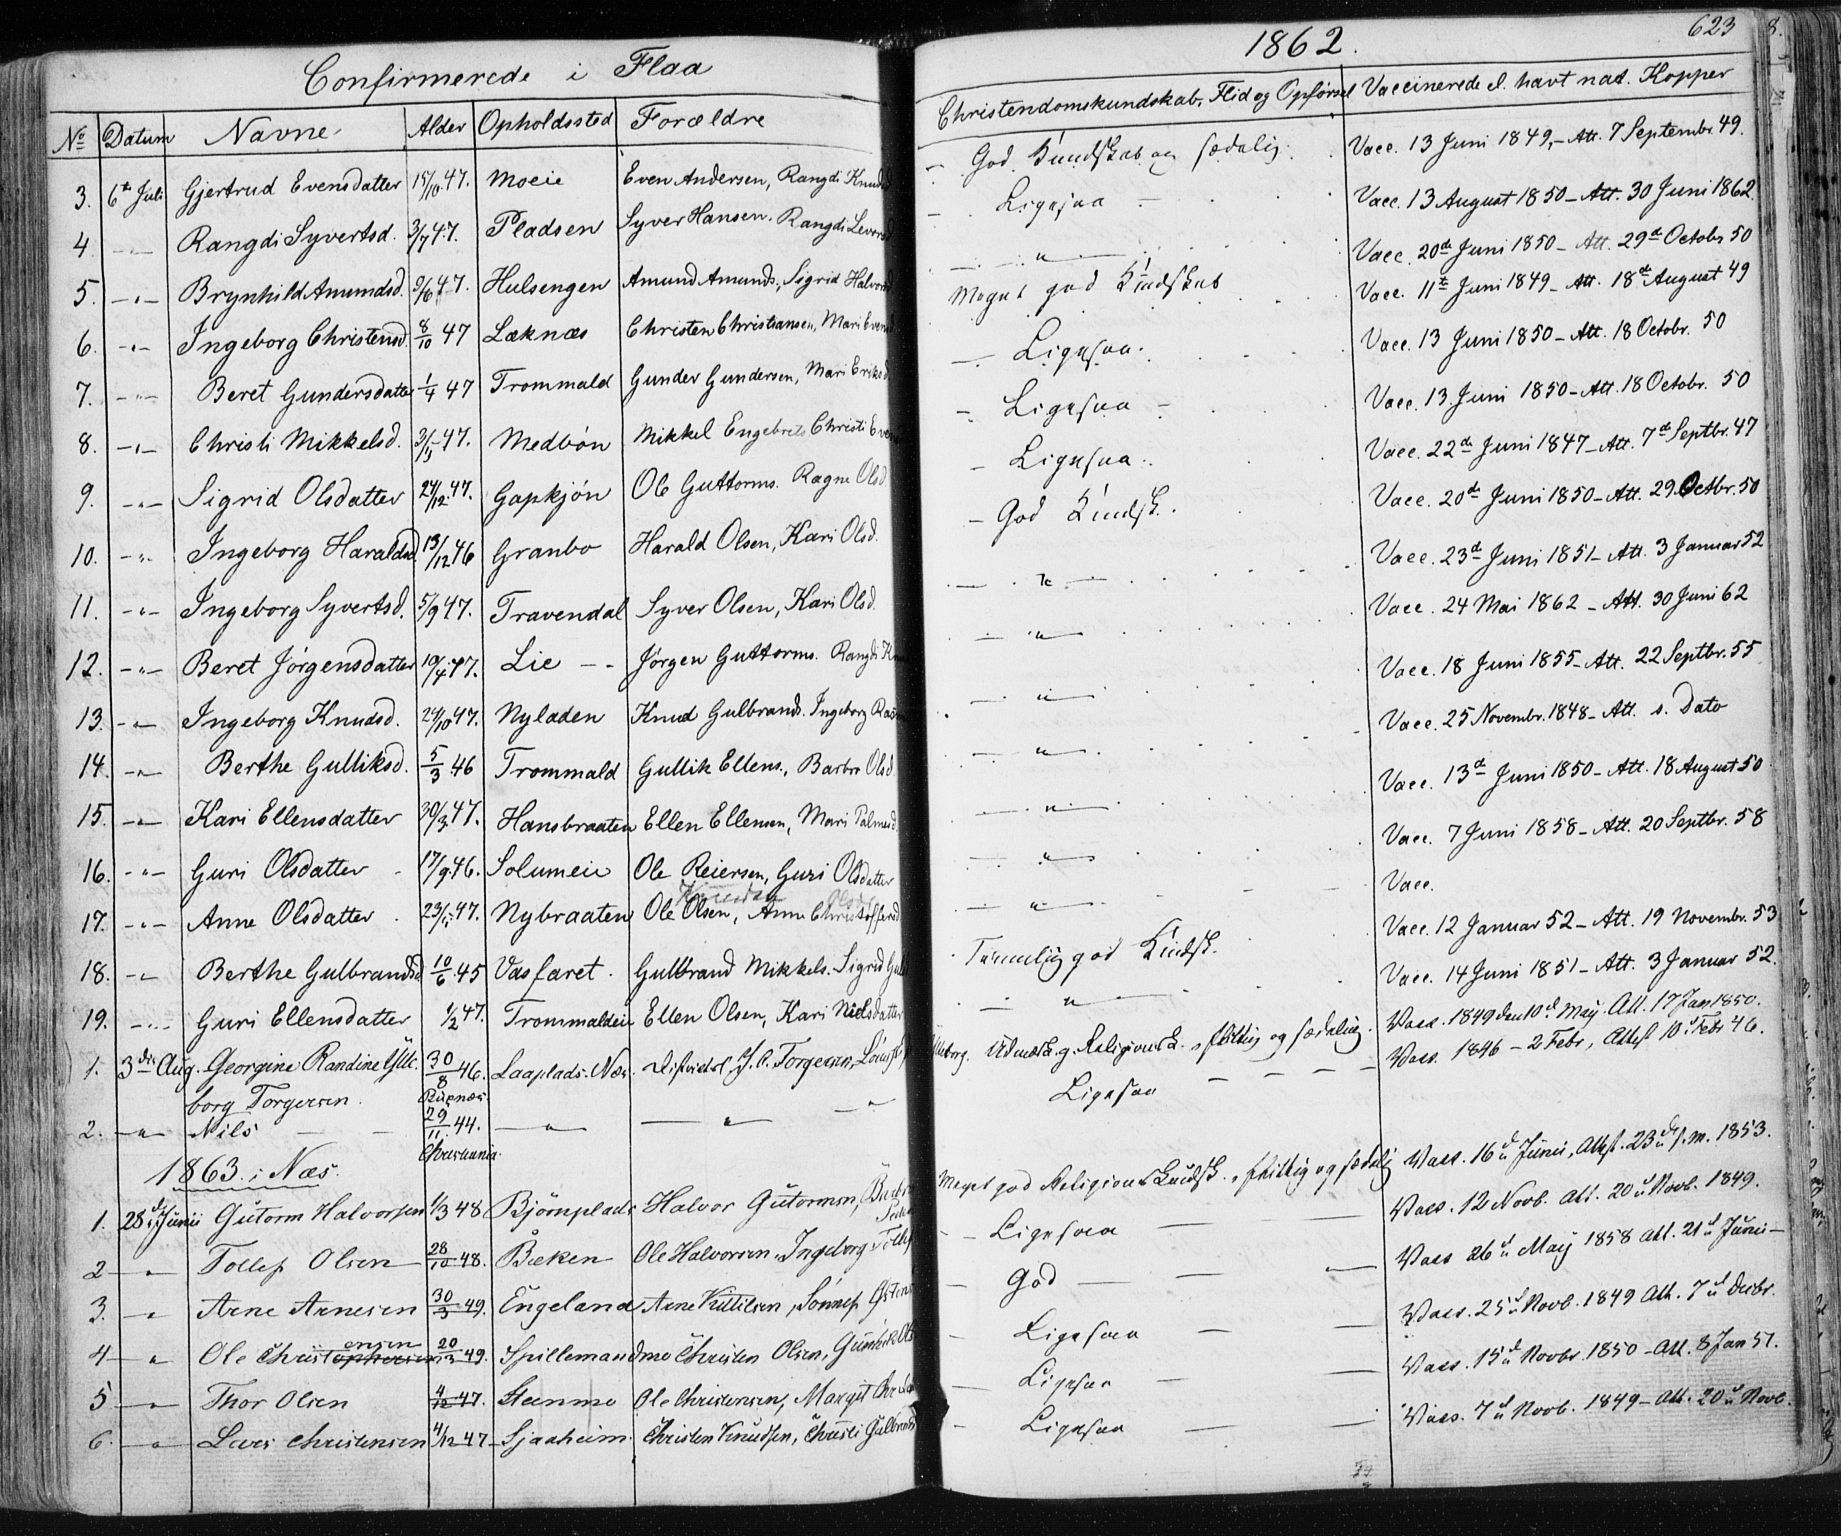 Confirmerede i Flaa
1862.
623
No Datum Navne Alder Opholdssted Forældre Christendomskundskab, Flid og Opførsel Vaccinerede el. havt nat. Kopper
3. 6te Juli Gjertrud Evensdatter 15/10 47. Moeie Even Andersen, Rangdi Knudsd — God Kundskab og sædelig. Vacc. 13 Juni 1849,- Att. 7 Septembr. 49.
4 —"— Rangdi Syvertsd. 3/7 47. Pladsen Syver Hansen. Rangdi Levorsd — Ligesaa — Vacc. 13 August 1850 – Att. 30 Juni 1862.
5. —"— Brynhild Amundsd. 9/6 47. Hulsengen Amund Amunds, Sigrid Halvorsd —"— Vacc. 20de Juni 1850 – Att. 29de Octobr 50
6. —"— Ingeborg Christensd. 8/10 47 Læknæs Christen Christiansen, Mari Evens Meget god Kundskab Vacc. 11te Juni 1849 – Att. 18de August 49
7. —"— Beret Gundersdatter 1/4 47 Trommald Gunder Gundersen, Mari Eriksd — Ligesaa. Vacc. 13 Juni 1850 – Att. 18 Octobr. 50
8. —"— Christi Mikkelsd. 3/5 47. Medbøn Mikkel Engebrets Christi Evens — Ligesaa — Vacc. 13 Juni 1850 – Att. 18 Octobr. 50
9. —"— Sigrid Olsdatter 24/12 47. Gapkjøn Ole Guttorms. Ragne Olsd — Ligesaa. Vacc. 22de Juni 1847 – Att. 7de Septbr. 47
10. —"— Ingeborg Haraldsd. 13/12 46 Granbo Harald Olsen, Kari Olsd. — God Kundsk. Vacc. 20de Juni 1850 – Att. 29 Octbr. 50
11. —"— Ingeborg Syvertsd. 5/9 47. Travendal Syver Olsen, Kari Olsd. —"— Vacc. 23de Juni 1851 – Att. 3 Januar 52
12. —"— Beret Jørgensdatter 19/4 47. Lie — Jørgen Guttorms. Rangdi Kn —"— Vacc. 24 Mai 1862 – Att. 30 Juni 62
13. —"— Ingeborg Knudsd. 24/10 47. Nyladen Knud Gulbrands. Ingeborg Ras —"— Vacc. 18 Juni 1855 – Att. 22 Septbr. 55
14. —"— Berthe Gulliksd. 5/3 46 Trommald Gullik Ellens., Barbro Olsd. —"— Vacc. 25 Novembr. 1848 – Att. s. Dato
15. —"— Kari Ellensdatter 30/3 47. Hansbraaten Ellen Ellensen, Mari Palmesd. —"— Vacc. 13de Juni 1850 – Att. 18 August 50
16. —"— Guri Olsdatter 17/9 46. Solumeie Ole Reiersen, Guri Olsdatter —"— Vacc. 7 Juni 1858 – Att. 20 Septbr. 58
Knudsen Olsd
17. —"— Anne Olsdatter 23/5 47. Nybraaten Ole Olsen, Anne Christoffersd —"— Vacc.
18. —"— Berthe Gulbrandsd 10/6 45 Vasfaret. Gulbrand Mikkels. Sigrid Gul Temmelig god Kundsk. Vacc. 12 Januar 52 – Att. 19 Novembr. 53
19. —"— Guri Ellensdatter 1/2 47. Trommaldeie Ellen Olsen, Kari Nielsdatter —"— Vacc. 14 Juni 1851 – Att. 3 Januar 52.
1. 3die Aug. Georgine Randine Ylle- 30/8 46. Laaplads. Næs. Distriktsl. J. A. Torgersen, Udmærk. g. Religionsk. flittig og sædelig. Vacc. 1849 den 10de May. Att. 17 Jan 1850.
borg Torgersen.
2. —"— Nils 29/11 44. —"— —"— Ligesaa — — — — Vacc. 1846 – 2 Febr, Attest 10de Febr 46.
Christiania
1863. i Næs.
1. 28de Junii Gutorm Halvorsen 1/3 48 Bjørnplads Halvor Gutormsen, Meget god Religions Kundsk., flittig og sædelig Vacc. 16de Junii, Attest. 23de s. m. 1853.
2 —"— Tollef Olsen 28/10 48. Bæken Ole Halvorsen, Ingeborg Tollefs — Ligesaa — Vacc. 12 Novb. Att. 20de Novb. 1849.
3. —"— Arne Arnesen 30/3 49. Engeland Arne Kittilsen, — God — Vacc 26de May 1858 Att. 21de Junii —
ensen
4 —"— Ole Christophersen 20/3 49. Spillemandmo Christen Olsen, Gunhild Ols — Ligesaa — Vacc. 25de Novb. 1849 Att. 7de Decbr.
5 —"— Thor Olsen 4/12 47. Steenmo Ole Christensen, Margit — Ligesaa — Vacc. 15de Novbr 1850 – Att. 8 Jan 51.
6. —"— Lars Christensen 4/12 47 Sjaaheim Christen Knudsen, Christi Gulbrands — Ligesaa — Vacc. 7de Novb. 1849 – Att. 20de Novb.